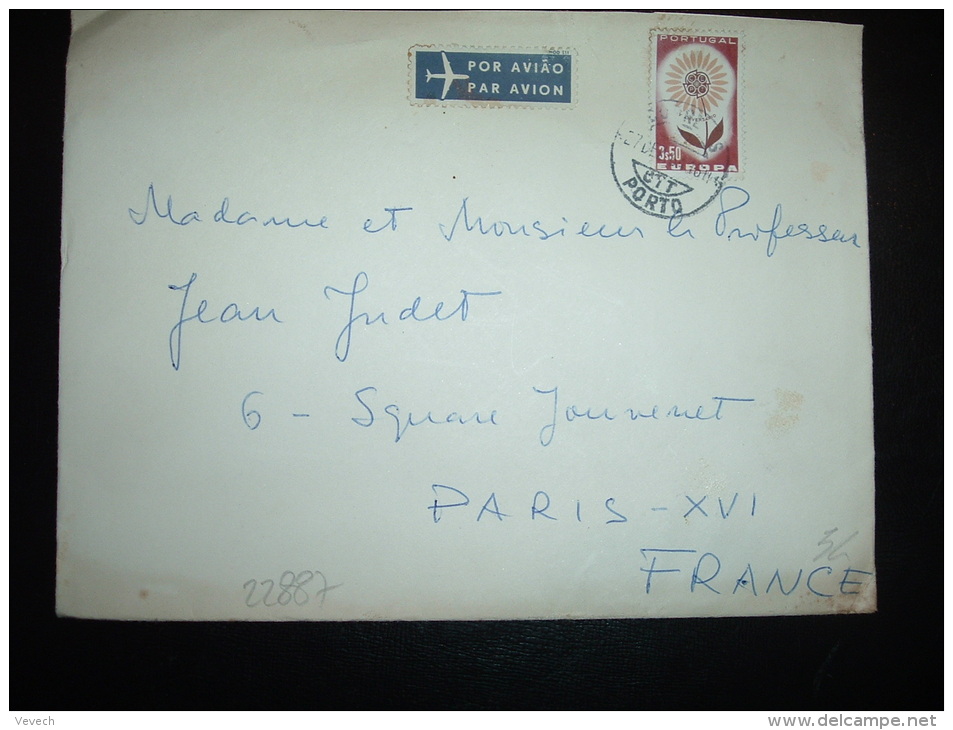 POR AVIÃO
PAR AVION
PORTUGAL
3$50
EUROPA
27 DE
CTT
PORTO
Madame et Monsieur le Professeur
Jean Judet
6 - Square Jouvenet
PARIS - XVI
FRANCE
22887
Vevech
www.delcampe.net